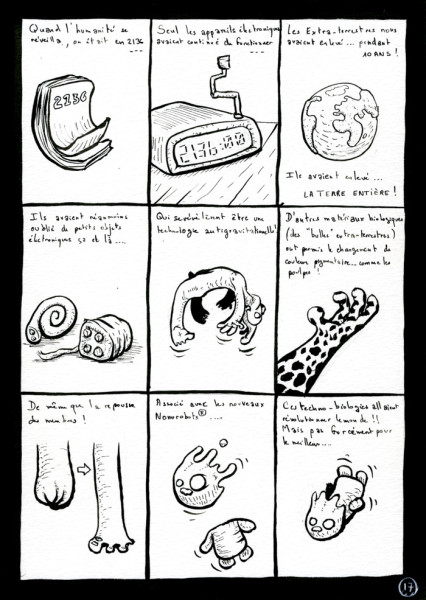 Quand l'humanité se
réveilla, on était en 2136
...
2136
Seul les appareils électroniques
avaient continué de fonctionner
...
2136:00
Les Extra-terrestres nous
avaient enlevé... pendant
10 ANS !
Ils avaient enlevé...
LA TERRE ENTIÈRE !
Ils avaient néanmoins
oublié de petits objets
électroniques çà et là....
Qui se révélèrent être une
technologie antigravitationnelle !
D'autres matériaux biologiques
(des "bulles" extra-terrestres)
ont permis le changement de
couleurs pigmentaire... comme les
poulpes !
De même que la repousse
des membres !
Associé avec les nouveaux
Nonorobots®....
Ces techno-biologies allaient
révolutionner le monde !!
Mais pas forcément pour
le meilleur....
17